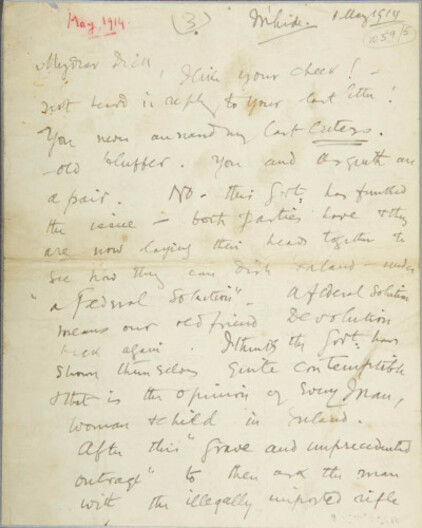 May, 1914. (3) Private. 1 May 1914
My dear Dick, I like your cheek! –
not word in reply to your last letter!
You never answered my last letters.
– old bluffer. You and Asquith are
a pair. No – this Govt: has funked
the issue – both parties have & they
are now laying their heads together to
see how they can dish Ireland – under
"a Federal Solution" – A federal Solution
means our old friend Devolution
back again. I think the Govt: has
shown themselves quite contemptible
& that is the opinion of every man,
woman & child in Ireland.
After this "grave and unprecedented
outrage" to then ask the man
with the illegally imported rifle